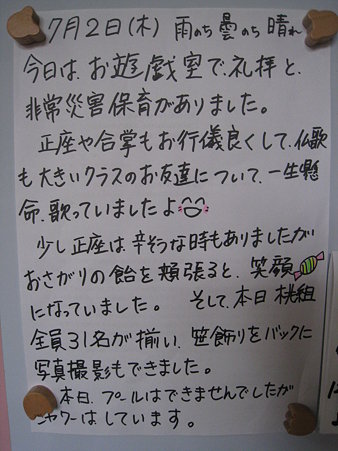 7月2日(木) 雨のち曇のち晴れ
今日は、お遊戯室で、礼拝と、
非常災害保育がありました。
正座や合掌もお行儀良くして、仏歌
も大きいクラスのお友達について、一生懸
命、歌っていましたよ
少し正座は、辛そうな時もありましたが
おさがりの飴を頬張ると、笑顔
になっていました。 そして、本日 桃組
全員31名が揃い、笹飾りをバックに
写真撮影もできました。
本日、プールはできませんでしたが
シャワーはしています。